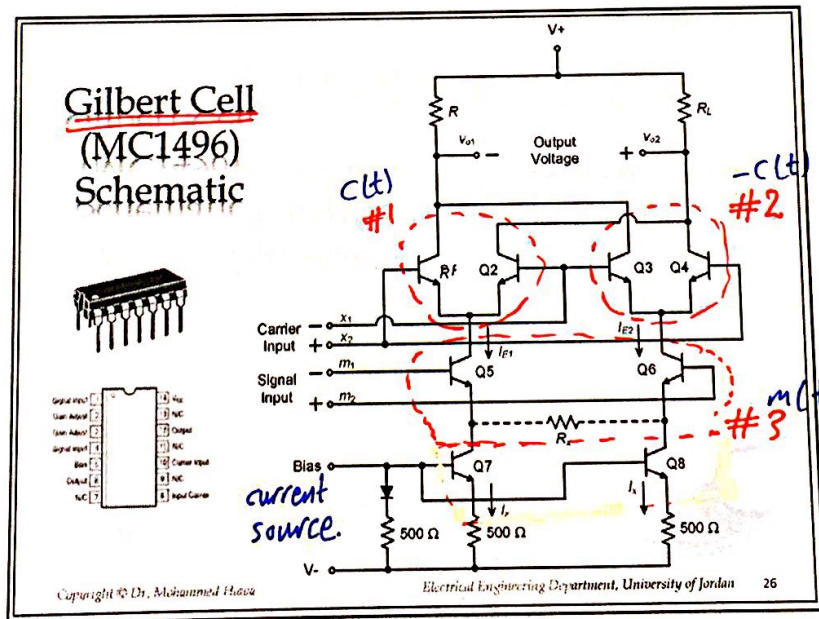 Gilbert Cell
(MC1496)
Schematic
V+
R
R_L
v_o1
−
Output
Voltage
+
v_o2
C(t)
#1
-C(t)
#2
Q2
Q3
Q4
Carrier
Input
− x_1
+ x_2
I_E1
I_E2
Signal
Input
− m_1
+ m_2
Q5
Q6
m(t
#3
Bias
Q7
Q8
current
source.
500 Ω
500 Ω
500 Ω
V-
Signal Input 1
Gain Adjust 2
Gain Adjust 3
Signal Input 4
Bias 5
Output 6
N/C 7
14 VEE
13 N/C
12 Output
11 N/C
10 Carrier Input
9 N/C
8 Input Carrier
Copyright © Dr. Mohammed Hawa
Electrical Engineering Department, University of Jordan
26